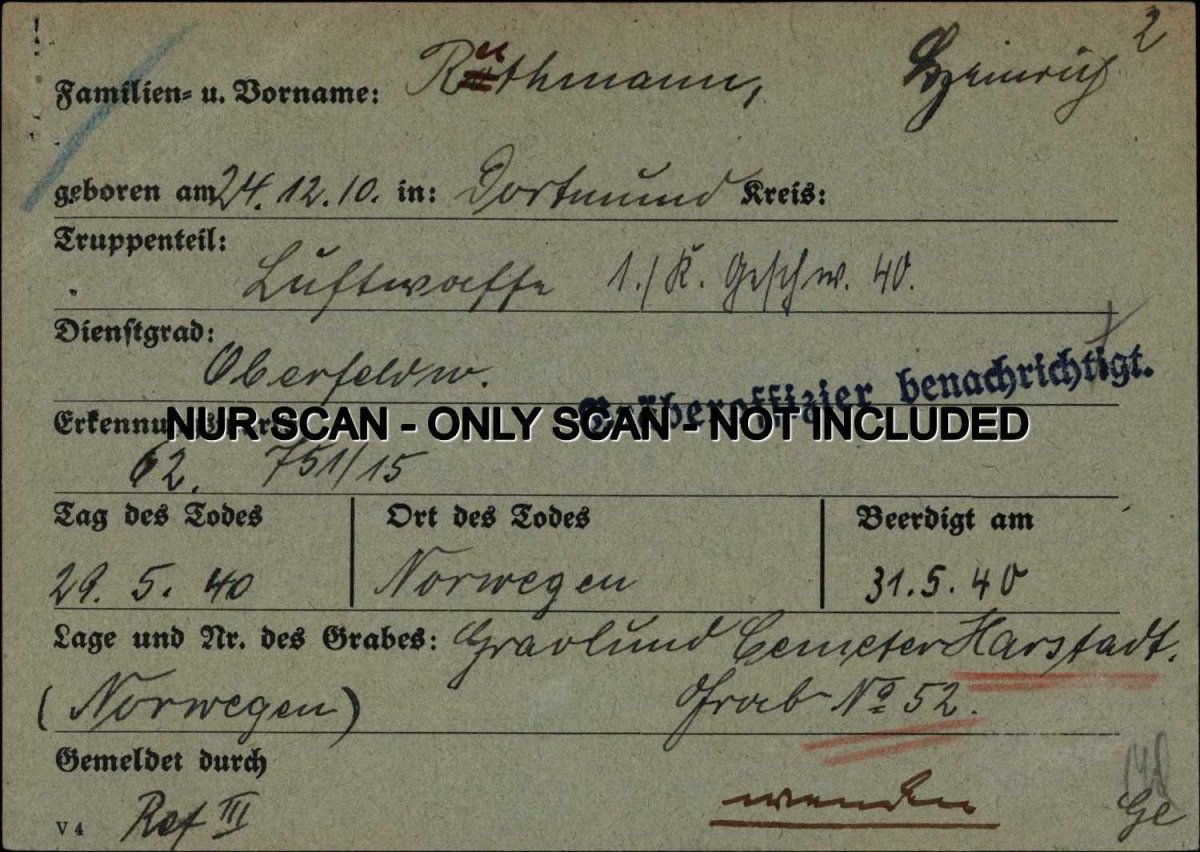 2
Familien- u. Vorname: Rüthmann, Heinrich
geboren am 24.12.10. in: Dortmund Kreis:
Truppenteil:
Luftwaffe 1./K. Geschw. 40.
Dienstgrad:
Oberfeldw.
Gräberoffizier benachrichtigt.
NUR SCAN - ONLY SCAN - NOT INCLUDED
62. 751/15
Tag des Todes Ort des Todes Beerdigt am
29. 5. 40 Norwegen 31. 5. 40
Lage und Nr. des Grabes: Gravlund Cemeter Harstadt.
(Norwegen) Grab № 52.
Gemeldet durch
Ref III wenden
V 4 Ge